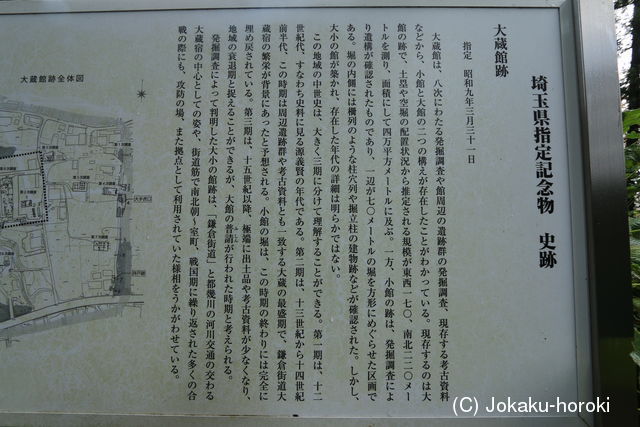 埼玉県指定記念物 史跡
大蔵館跡
指定 昭和九年三月三十一日
大蔵館は、八次にわたる発掘調査や館周辺の遺跡群の発掘調査、現存する考古資料
などから、小館と大館の二つの構えが存在したことがわかっている。現存するのは大
館の跡で、土塁や空堀の配置状況から推定される規模が東西一七〇、南北二二〇メー
トルを測り、面積にして四万平方メートルに及ぶ。一方、小館の跡は、発掘調査によ
り遺構が確認されたものであり、一辺が七〇メートルの堀を方形にめぐらせた区画で
ある。堀の内側には柵列のような柱穴列や掘立柱の建物跡などが確認された。しかし、
大小の館が築かれ、存在した年代の詳細は明らかではない。
この地域の中世史は、大きく三期に分けて理解することができる。第一期は、十二
世紀代、すなわち史料に見る源義賢の年代である。第二期は、十三世紀から十四世紀
前半代、この時期は周辺遺跡群や考古資料とも一致する大蔵の最盛期で、鎌倉街道大
蔵宿の繁栄が背景にあったと予想される。小館の堀は、この時期の終わりには完全に
埋め戻されている。第三期は、十五世紀以降、極端に出土品や考古資料が少なくなり、
地域の衰退期と捉えることができるが、大館の普請が行われた時期と考えられる。
発掘調査によって判明した大小の館跡は、「鎌倉街道」と都幾川の河川交通の交わる
大蔵宿の中心としての姿や、街道筋で南北朝〜室町、戦国期に繰り返された多くの合
戦の際にも、攻防の場、また拠点として利用されていた様相をうかがわせている。
大蔵館跡全体図
(C) Jokaku-horoki